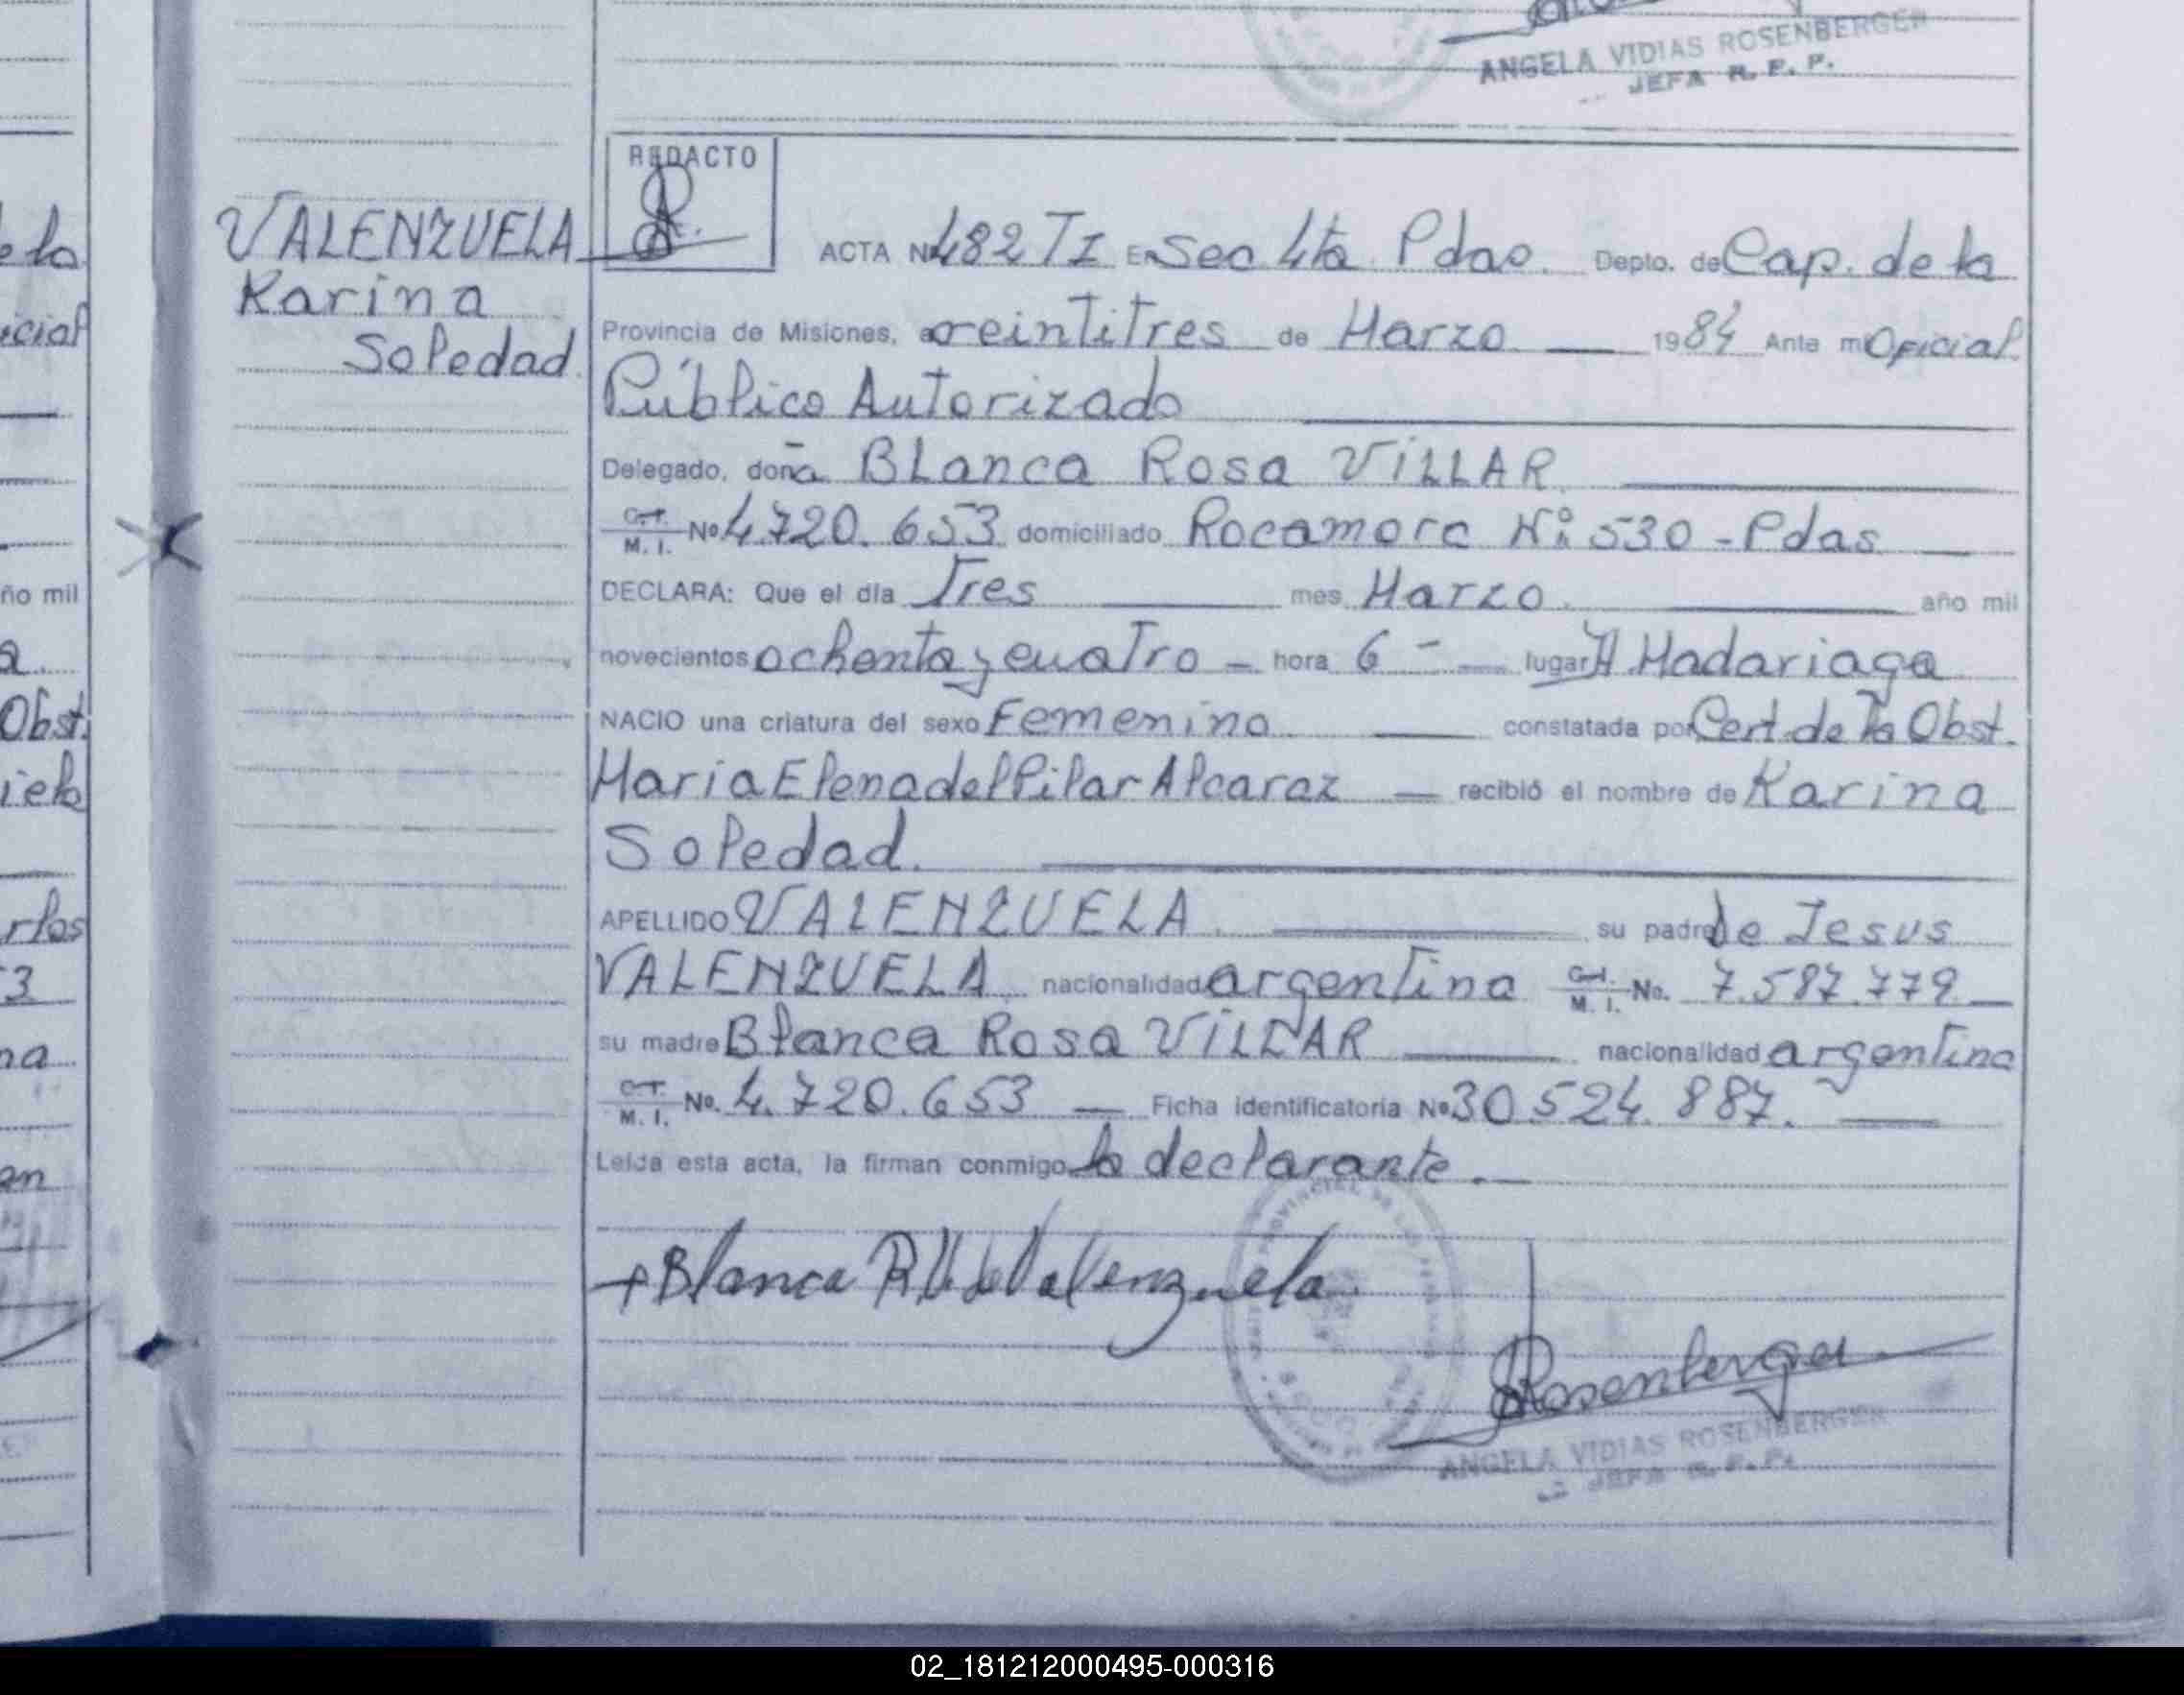 ANGELA VIDIAS ROSENBERGER
JEFA R. P. P.
REDACTO
VALENZUELA
Karina
Soledad
ACTA Nº 482 TI En Sec 4ta Pdas. Depto. de Cap. de la
Provincia de Misiones, a veintitres de Marzo 1984 Ante mi Oficial
Público Autorizado
Delegado, doña Blanca Rosa VILLAR
C.I. M. I. Nº 4.720.653 domiciliado Rocamora Nº 530 - Pdas
DECLARA: Que el día Tres mes Marzo año mil
novecientos ochenta y cuatro - hora 6 - lugar H. Madariaga
NACIO una criatura del sexo Femenino constatada por Cert. de la Obst.
Maria Elena del Pilar Alcaraz - recibió el nombre de Karina
Soledad.
APELLIDO VALENZUELA su padre De Jesus
VALENZUELA nacionalidad argentina C.I. M. I. No. 7.587.779
su madre Blanca Rosa VILLAR nacionalidad argentina
C.I. M. I. No. 4.720.653 - Ficha identificatoria Nº 30524.887.
Leída esta acta, la firman conmigo la declarante.
Blanca R V de Valenzuela
Rosenberger
ANGELA VIDIAS ROSENBERGER
JEFA R. P. P.
la
icial
ño mil
a
Obst.
iela
rlos
3
na
an
02_181212000495-000316